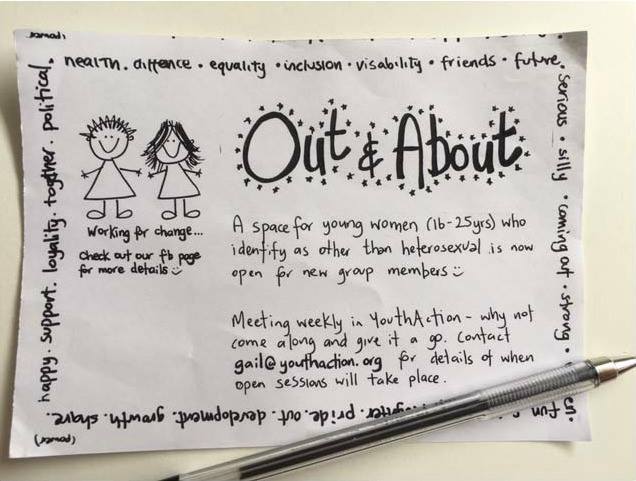 (power)
health. diffence • equality • inclusion • visability • friends • future.
serious • silly • coming out • strong •
fun
pride. out. development. growth. share.
(power)
happy. support. loyality. together. political.
Out & About
Working for change...
Check out our fb page
for more details
A space for young women (16-25yrs) who
identify as other than heterosexual is now
open for new group members
Meeting weekly in YouthAction - why not
come along and give it a go. Contact
gail@youthaction.org for details of when
open sessions will take place.